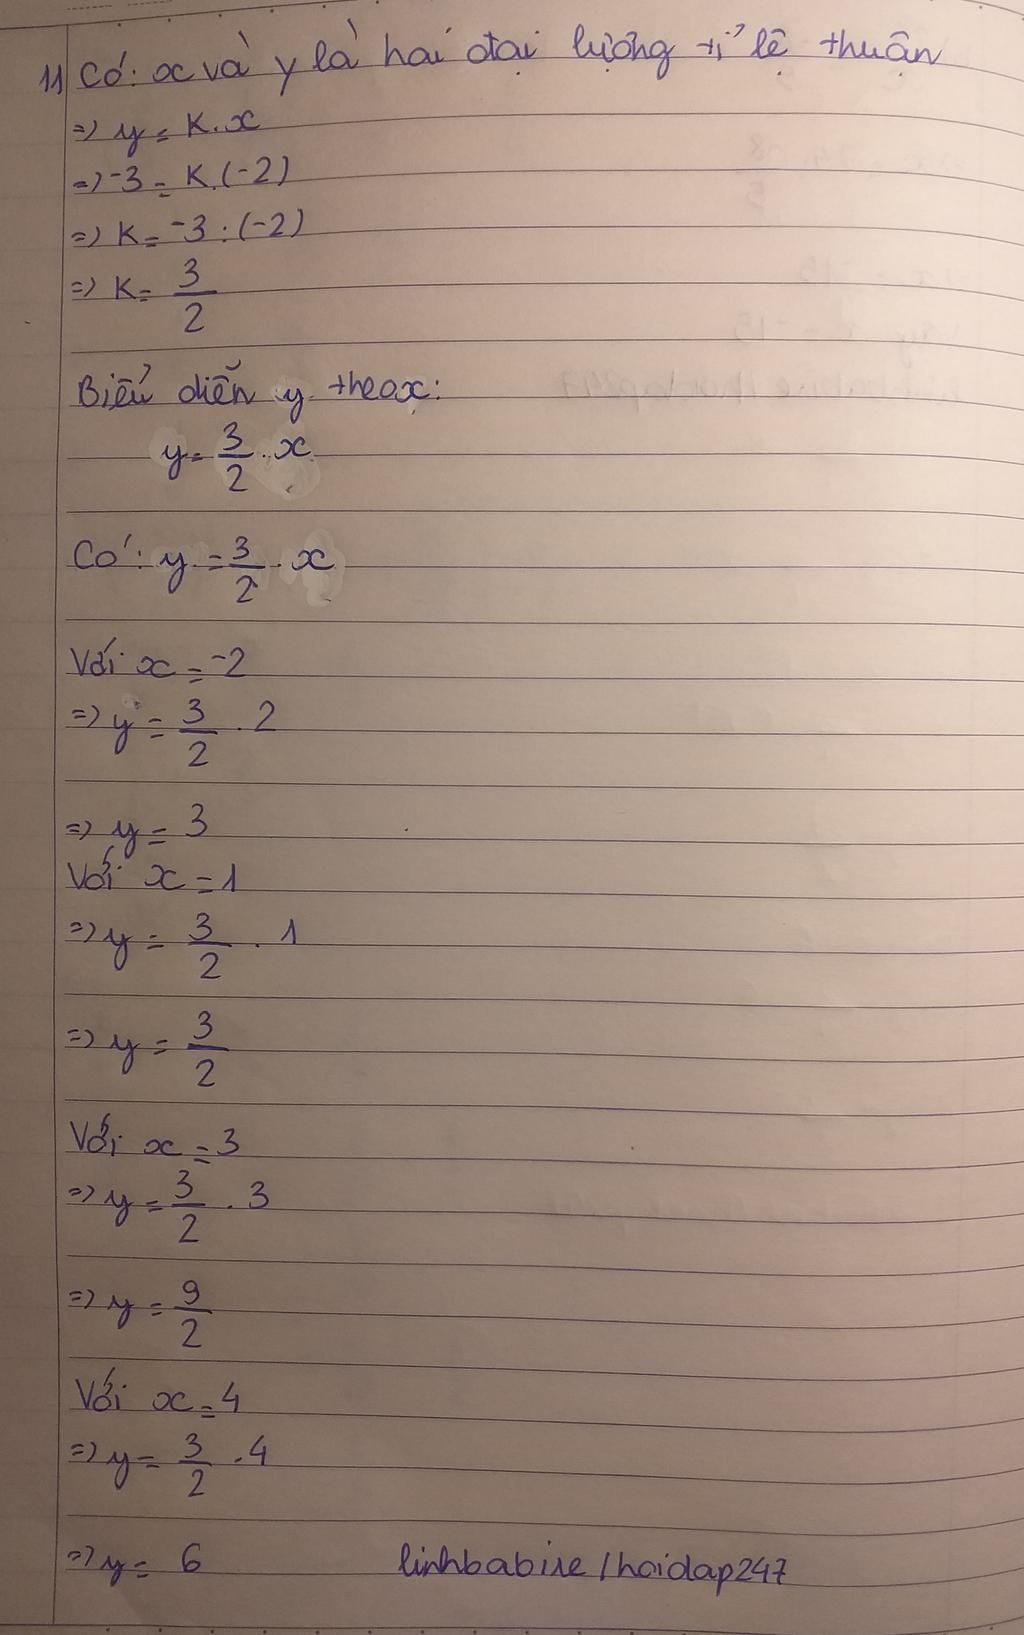 11 Có: x và y là hai đại lượng tỉ lệ thuận
=> y = K.x
=> -3 = K.(-2)
=> K = -3 : (-2)
=> K = 3/2
Biểu diễn y theo x:
y = 3/2 . x
Có: y = 3/2 . x
Với x = -2
=> y = 3/2 . 2
=> y = 3
Với x = 1
=> y = 3/2 . 1
=> y = 3/2
Với x = 3
=> y = 3/2 . 3
=> y = 9/2
Với x = 4
=> y = 3/2 . 4
=> y = 6 linhbabine / hoidap247